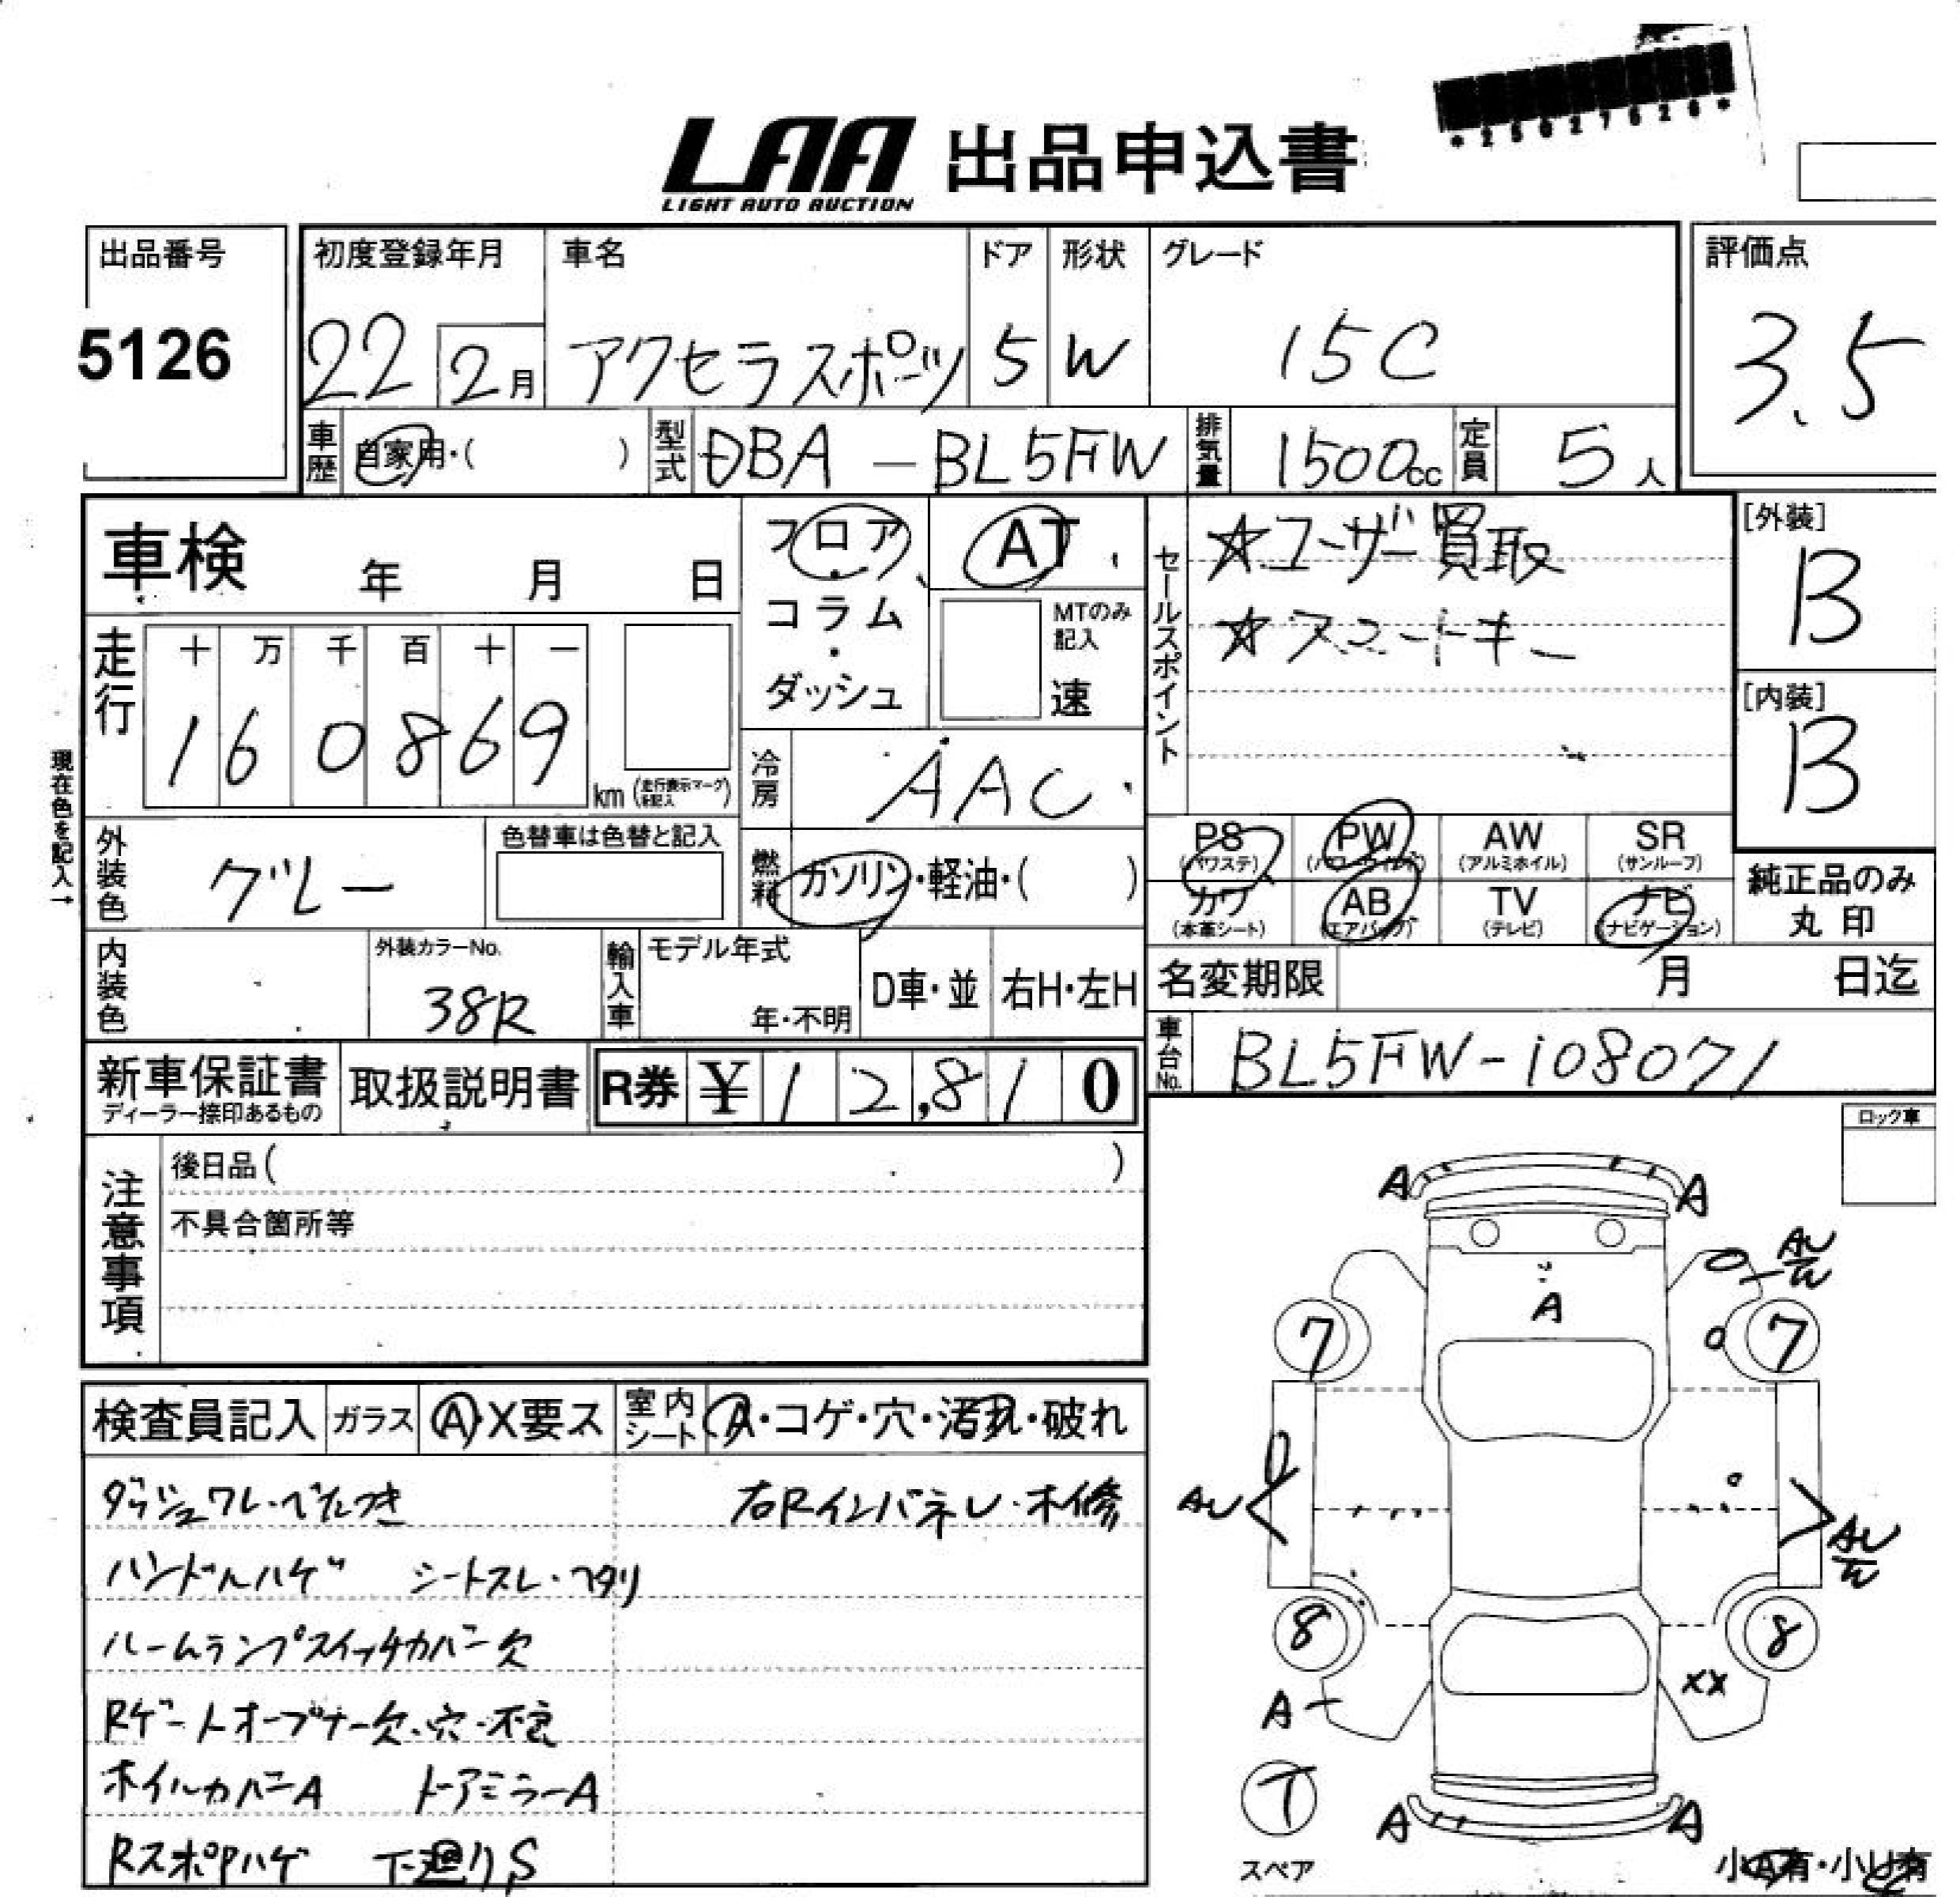 *25027626*
LAA 出品申込書
LIGHT AUTO AUCTION
出品番号
5126
初度登録年月 車名 ドア 形状 グレード
22 2月 アクセラスポーツ 5 W 15C
評価点
3.5
車歴 自家用・( ) 型式 DBA-BL5FW 排気量 1500cc 定員 5人
車検 年 月 日
フロア・コラム・ダッシュ
AT
MTのみ記入
速
セールスポイント
☆ユーザー買取
☆スマートキー
[外装]
B
[内装]
B
走行
十 万 千 百 十 一
1 6 0 8 6 9 km (走行表示マークを記入)
現在色を記入→
冷房 AAC
外装色 グレー
色替車は色替と記入
燃料 ガソリン・軽油・( )
PS (パワステ) PW (パワーウィンド) AW (アルミホイル) SR (サンルーフ)
カワ (本革シート) AB (エアバッグ) TV (テレビ) ナビ (ナビゲーション)
純正品のみ
丸印
内装色
外装カラーNo.
38R
輸入車
モデル年式
年・不明
D車・並 右H・左H
名変期限 月 日迄
新車保証書
ディーラー捺印あるもの
取扱説明書
R券 ¥12,810
車台No. BL5FW-108071
注意事項
後日品( )
不具合箇所等
ロック車
検査員記入 ガラス A・X要ス 室内シート A・コゲ・穴・汚れ・破れ
ダッシュワレ・べたつき 右Rインパネレ・木修
ハンドルハゲ シートスレ・ヘタリ
ルームランプスイッチカバー欠
Rゲートオープナー欠・穴・不良
ホイルカバーA ドアミラーA
RスポPハゲ 下廻りS
A A
AU
W
A
7 7
AU
AU
W
8 8
XX
A
T
スペア
A A
小A有・小U有